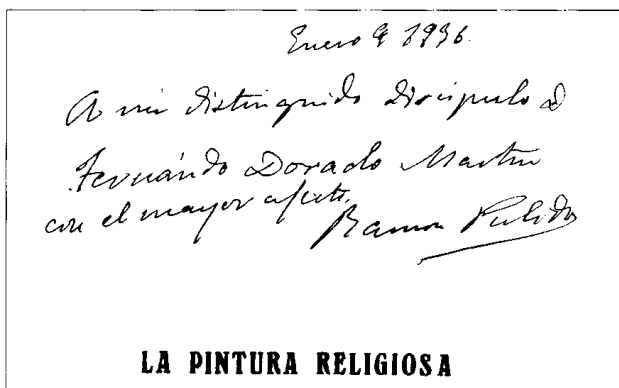 Enero 9 1936
A mi distinguido discípulo D
Fernándo Dorado Martin
con el mayor afecto.
Ramon Pulido
LA PINTURA RELIGIOSA